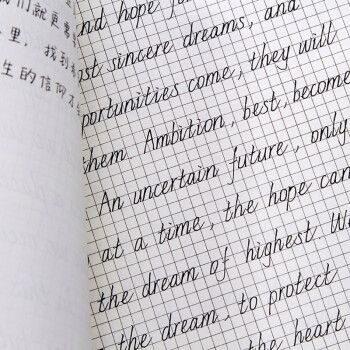 我们就更需
里，找到
生的信仰才
and hope
sincere dreams, and
opportunities come, they will
them. Ambition, best, become
An uncertain future, only
at a time, the hope can
the dream of highest
the dream, to protect
the heart